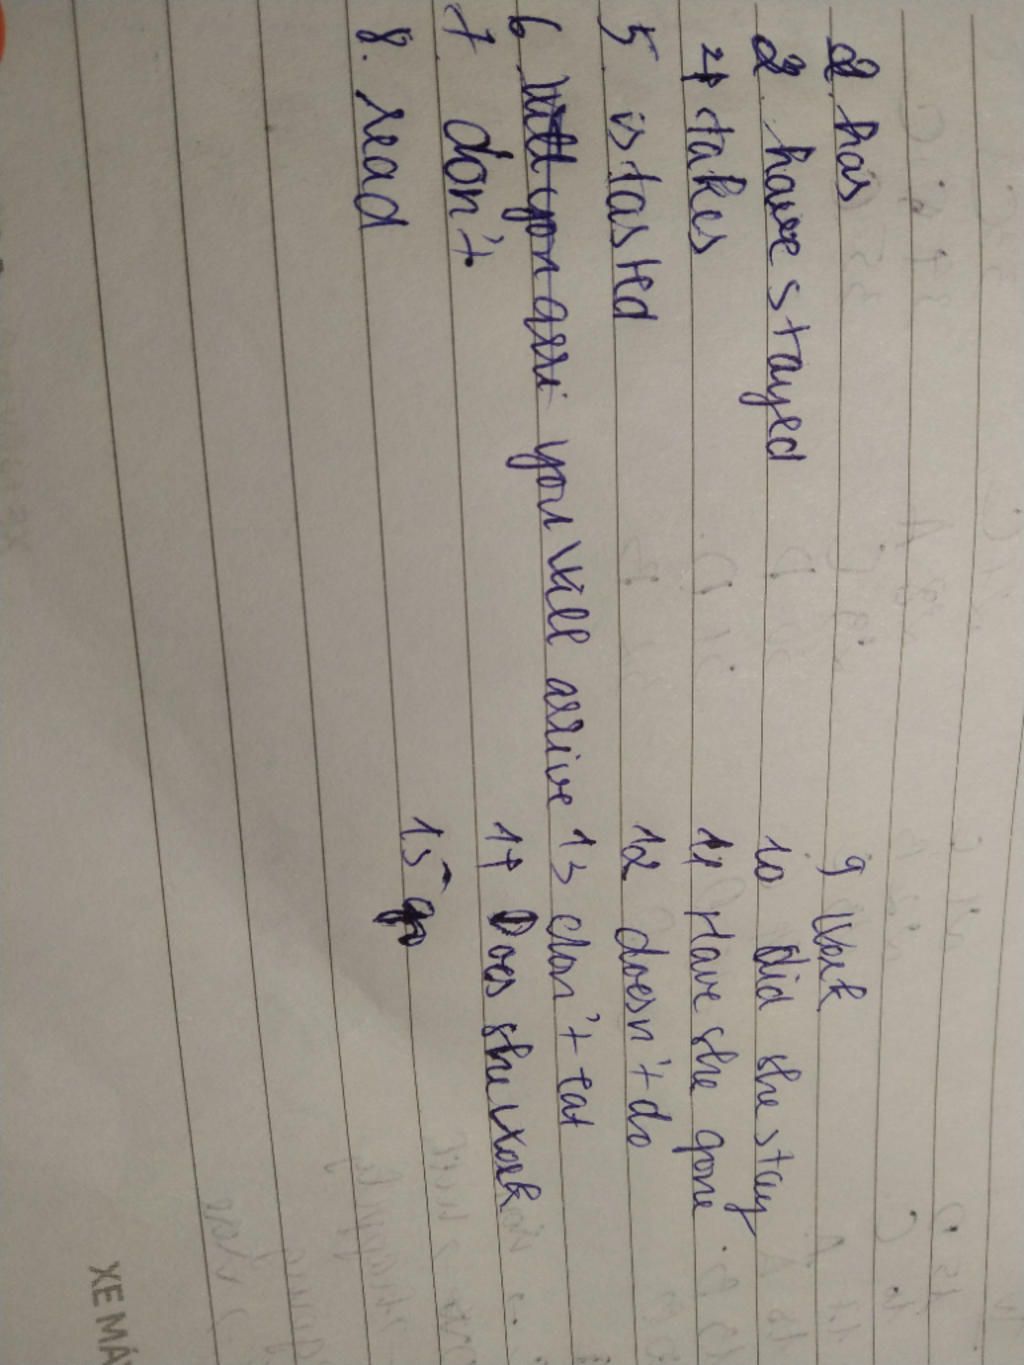 2. has
2. have stayed
4 takes
5. is tasted
6. will you arri you will arrive
7. don't
8. read
9 Work
10 did she stay
11 Have she gone
12 doesn't do
13 don't eat
14 Does she work
15 go
XE MÁY